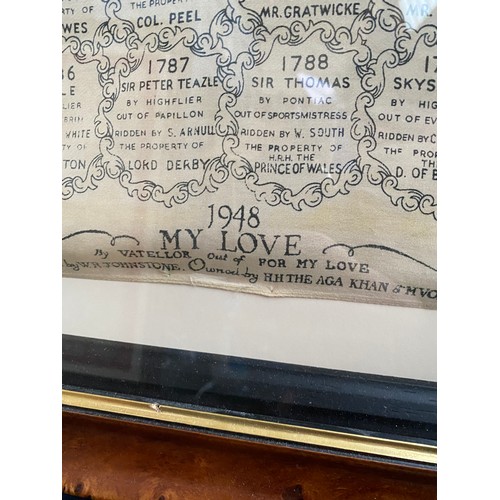 RTY OF
THE PROPERTY OF
MR. GRATWICKE
MR.
WES
COL. PEEL
86
LE
LIER
WHITE
TY OF
TON
1787
SIR PETER TEAZLE
BY HIGHFLIER
OUT OF PAPILLON
RIDDEN BY S. ARNULL
THE PROPERTY OF
LORD DERBY
1788
SIR THOMAS
BY PONTIAC
OUT OF SPORTSMISTRESS
RIDDEN BY W. SOUTH
THE PROPERTY OF
H.R.H. THE
PRINCE OF WALES
SKYS
BY HIG
OUT OF EV
RIDDEN BY C
THE PROP
D. OF B
1948
MY LOVE
By VATELLOR Out of FOR MY LOVE
by W.R. JOHNSTONE. Owned by H H THE AGA KHAN & M VO